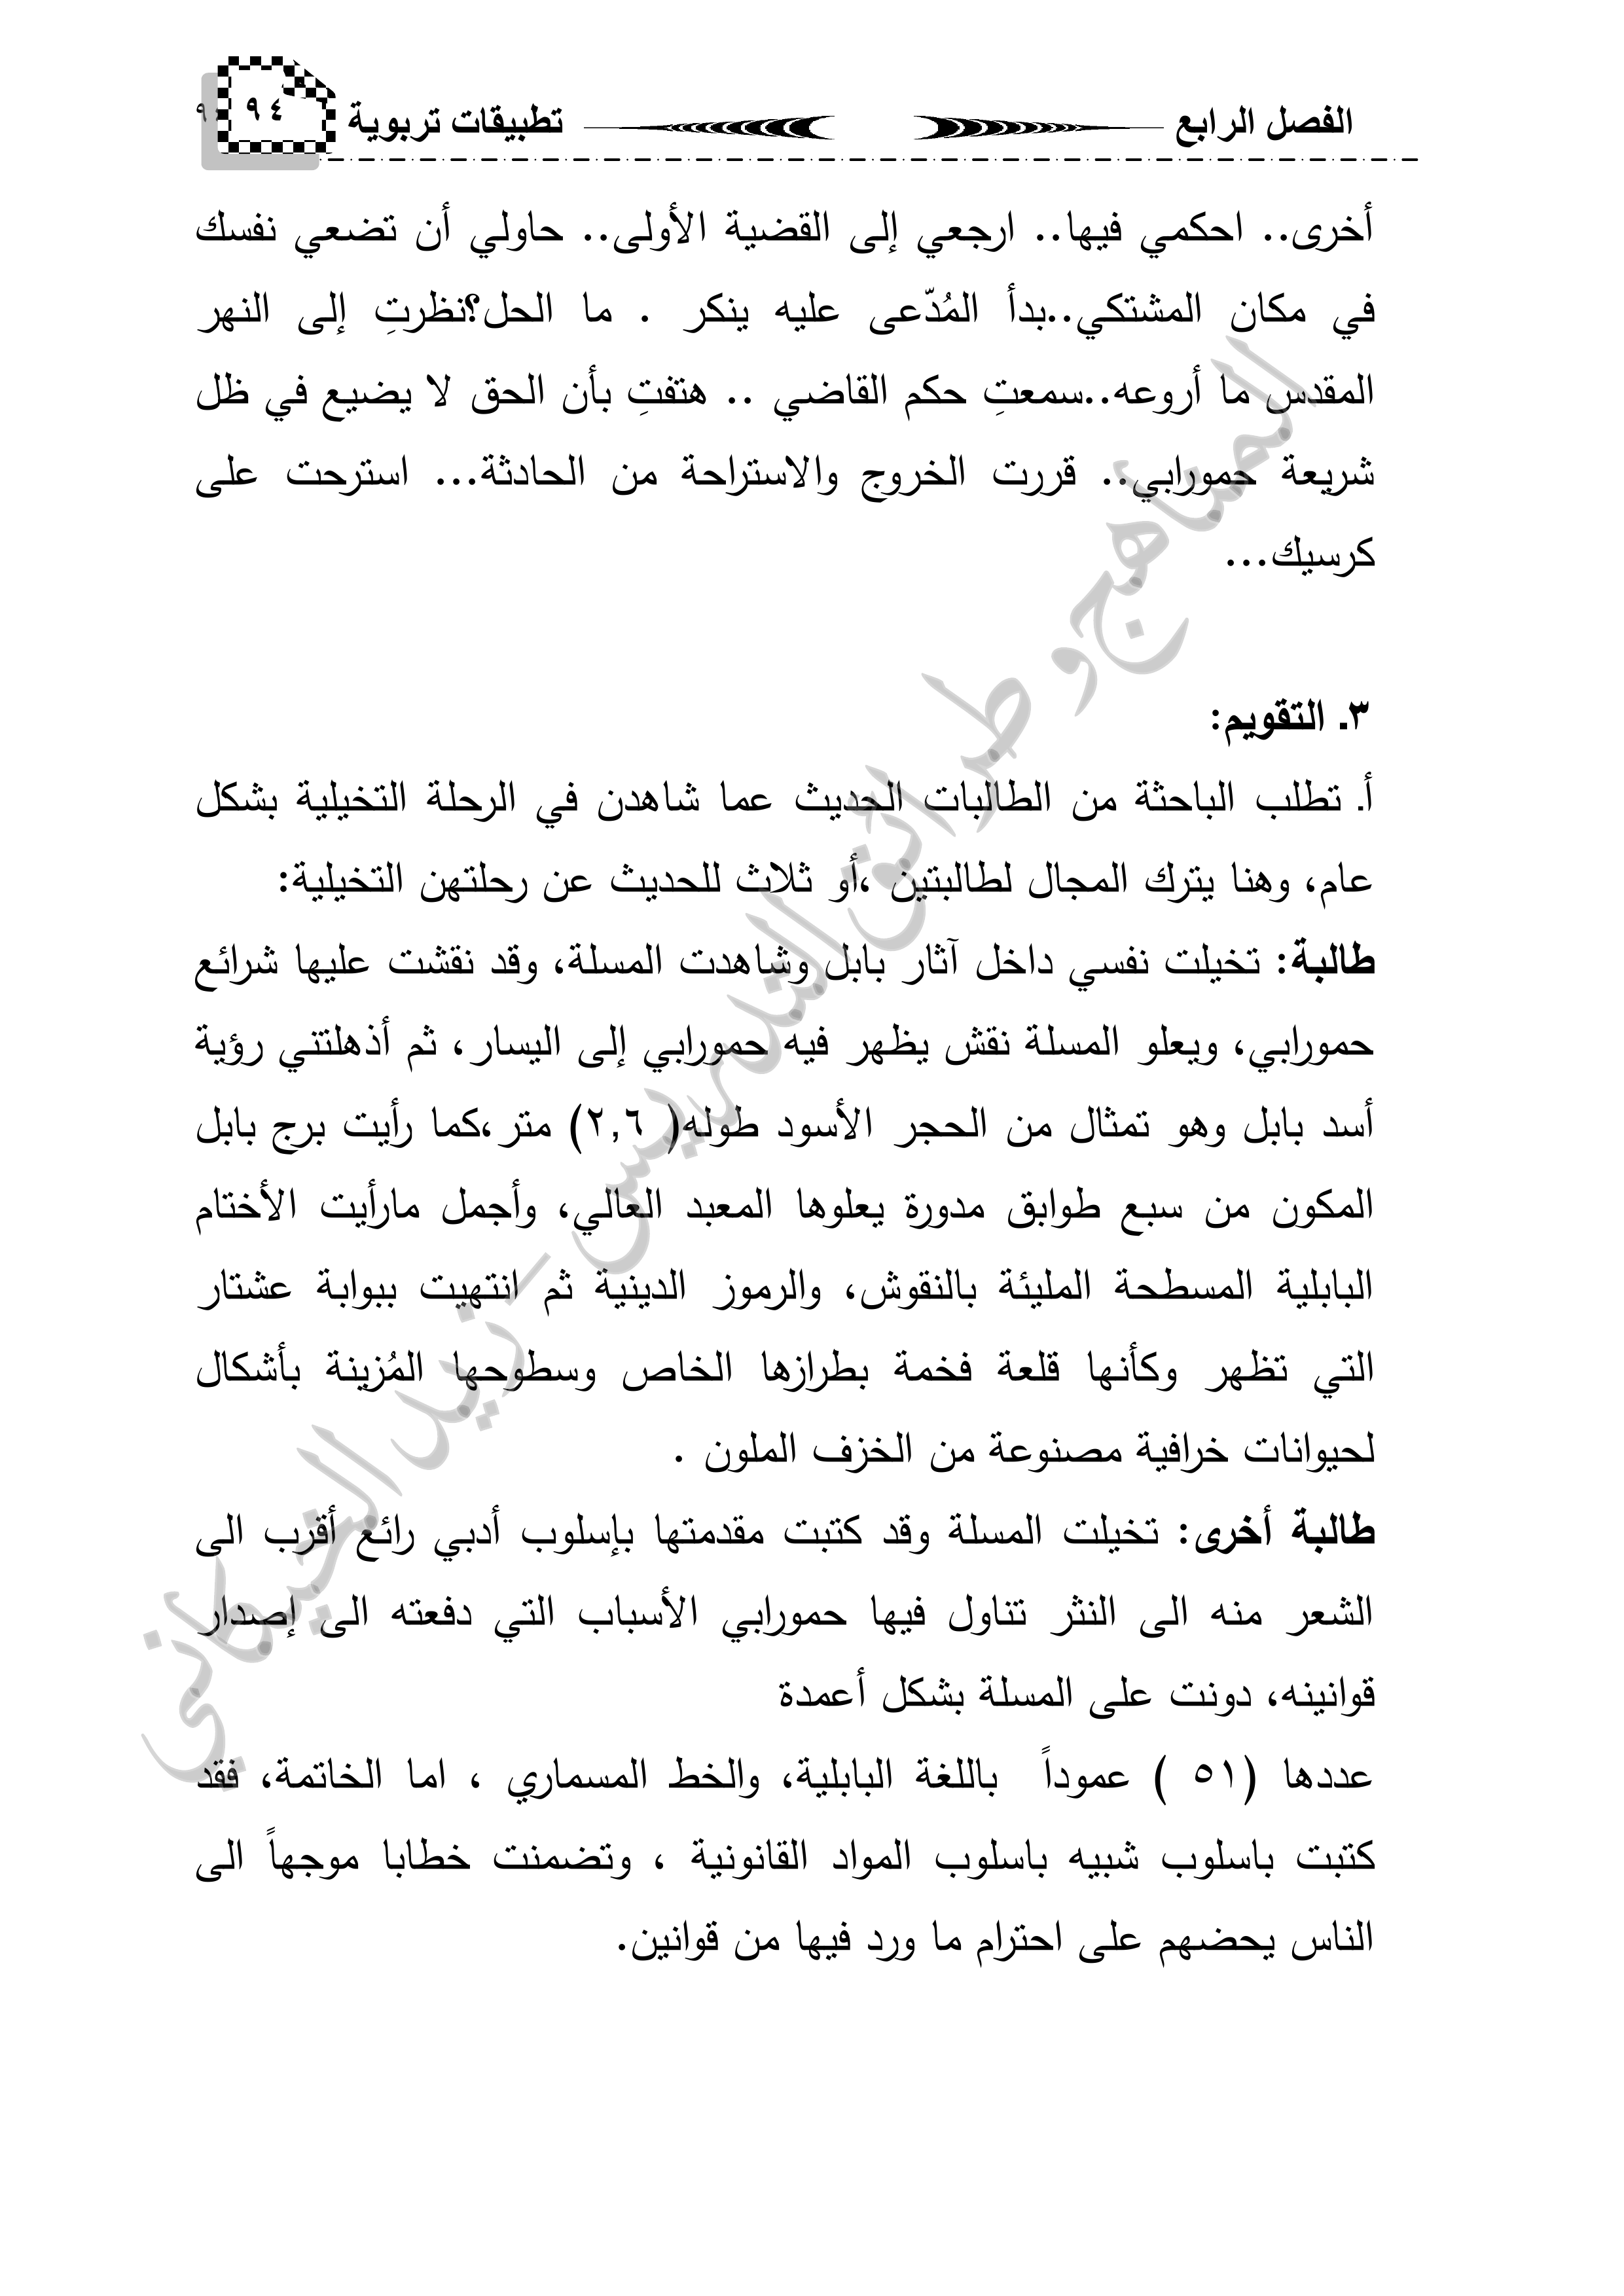 الفصل الرابع تطبيقات تربوية ٩٤
أخرى.. احكمي فيها.. ارجعي إلى القضية الأولى.. حاولي أن تضعي نفسك
في مكان المشتكي..بدأ المُدّعى عليه ينكر . ما الحل؟نظرتِ إلى النهر
المقدس ما أروعه..سمعتِ حكم القاضي .. هتفتِ بأن الحق لا يضيع في ظل
شريعة حمورابي.. قررت الخروج والاستراحة من الحادثة... استرحت على
كرسيك...
٣. التقويم:
أ. تطلب الباحثة من الطالبات الحديث عما شاهدن في الرحلة التخيلية بشكل
عام، وهنا يترك المجال لطالبتين ،أو ثلاث للحديث عن رحلتهن التخيلية:
طالبة: تخيلت نفسي داخل آثار بابل وشاهدت المسلة، وقد نقشت عليها شرائع
حمورابي، ويعلو المسلة نقش يظهر فيه حمورابي إلى اليسار، ثم أذهلتني رؤية
أسد بابل وهو تمثال من الحجر الأسود طوله( ٢,٦) متر،كما رأيت برج بابل
المكون من سبع طوابق مدورة يعلوها المعبد العالي، وأجمل مارأيت الأختام
البابلية المسطحة المليئة بالنقوش، والرموز الدينية ثم انتهيت ببوابة عشتار
التي تظهر وكأنها قلعة فخمة بطرازها الخاص وسطوحها المُزينة بأشكال
لحيوانات خرافية مصنوعة من الخزف الملون .
طالبة أخرى: تخيلت المسلة وقد كتبت مقدمتها بإسلوب أدبي رائع أقرب الى
الشعر منه الى النثر تناول فيها حمورابي الأسباب التي دفعته الى إصدار
قوانينه، دونت على المسلة بشكل أعمدة
عددها (٥١ ) عموداً باللغة البابلية، والخط المسماري ، اما الخاتمة، فقد
كتبت باسلوب شبيه باسلوب المواد القانونية ، وتضمنت خطابا موجهاً الى
الناس يحضهم على احترام ما ورد فيها من قوانين.
المناهج و طرائق التدريس - زيد الخيكاني